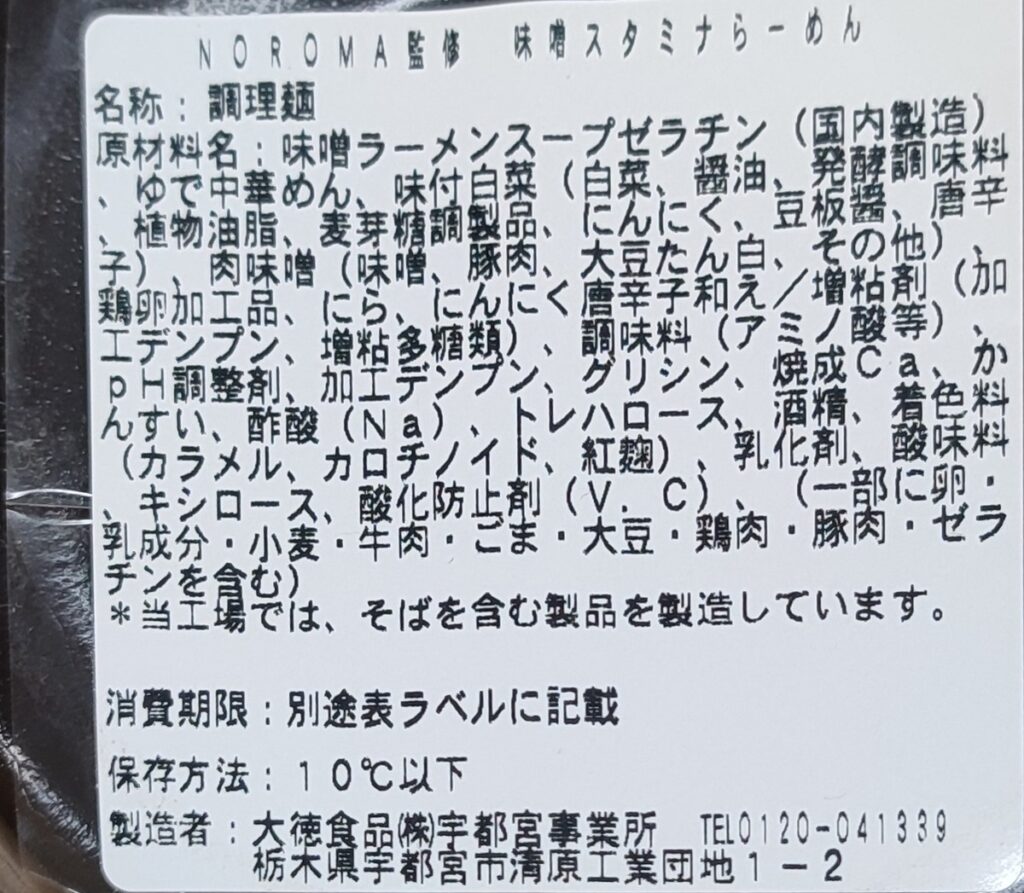 ＮＯＲＯＭＡ監修　味噌スタミナらーめん
名称：調理麺
原材料名：味噌ラーメンスープゼラチン（国内製造）
、ゆで中華めん、味付白菜（白菜、醤油、発酵調味料
、植物油脂、麦芽糖調製品、にんにく、豆板醤、唐辛
子）、肉味噌（味噌、豚肉、大豆たん白、その他）、
鶏卵加工品、にら、にんにく唐辛子和え／増粘剤（加
工デンプン、増粘多糖類）、調味料（アミノ酸等）、
ｐＨ調整剤、加工デンプン、グリシン、焼成Ｃａ、か
んすい、酢酸（Ｎａ）、トレハロース、酒精、着色料
（カラメル、カロチノイド、紅麹）、乳化剤、酸味料
、キシロース、酸化防止剤（Ｖ．Ｃ）、（一部に卵・
乳成分・小麦・牛肉・ごま・大豆・鶏肉・豚肉・ゼラ
チンを含む）
＊当工場では、そばを含む製品を製造しています。
消費期限：別途表ラベルに記載
保存方法：１０℃以下
製造者：大徳食品㈱宇都宮事業所　TEL0120-041339
栃木県宇都宮市清原工業団地１－２